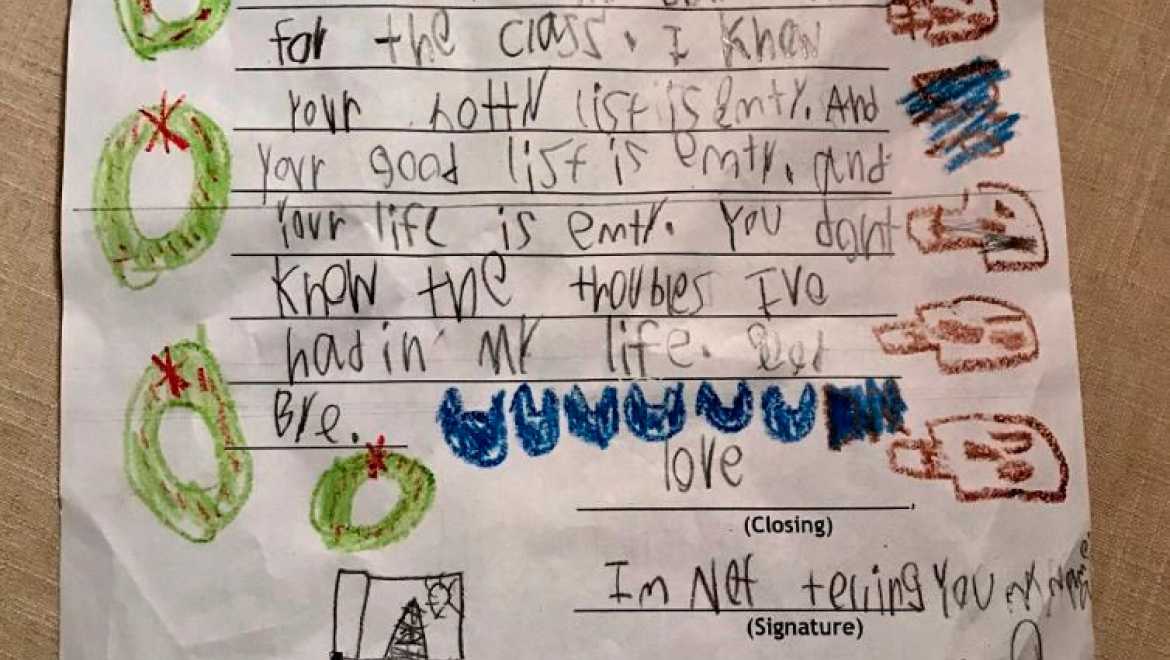 for the class. I Know
Your nottN list is emty. And
Your good list is emty. and
Your life is emty. You dont
Know the thoubles I've
had in my life. Good
Bye.
love
(Closing)
Im Not telling You my Name
(Signature)